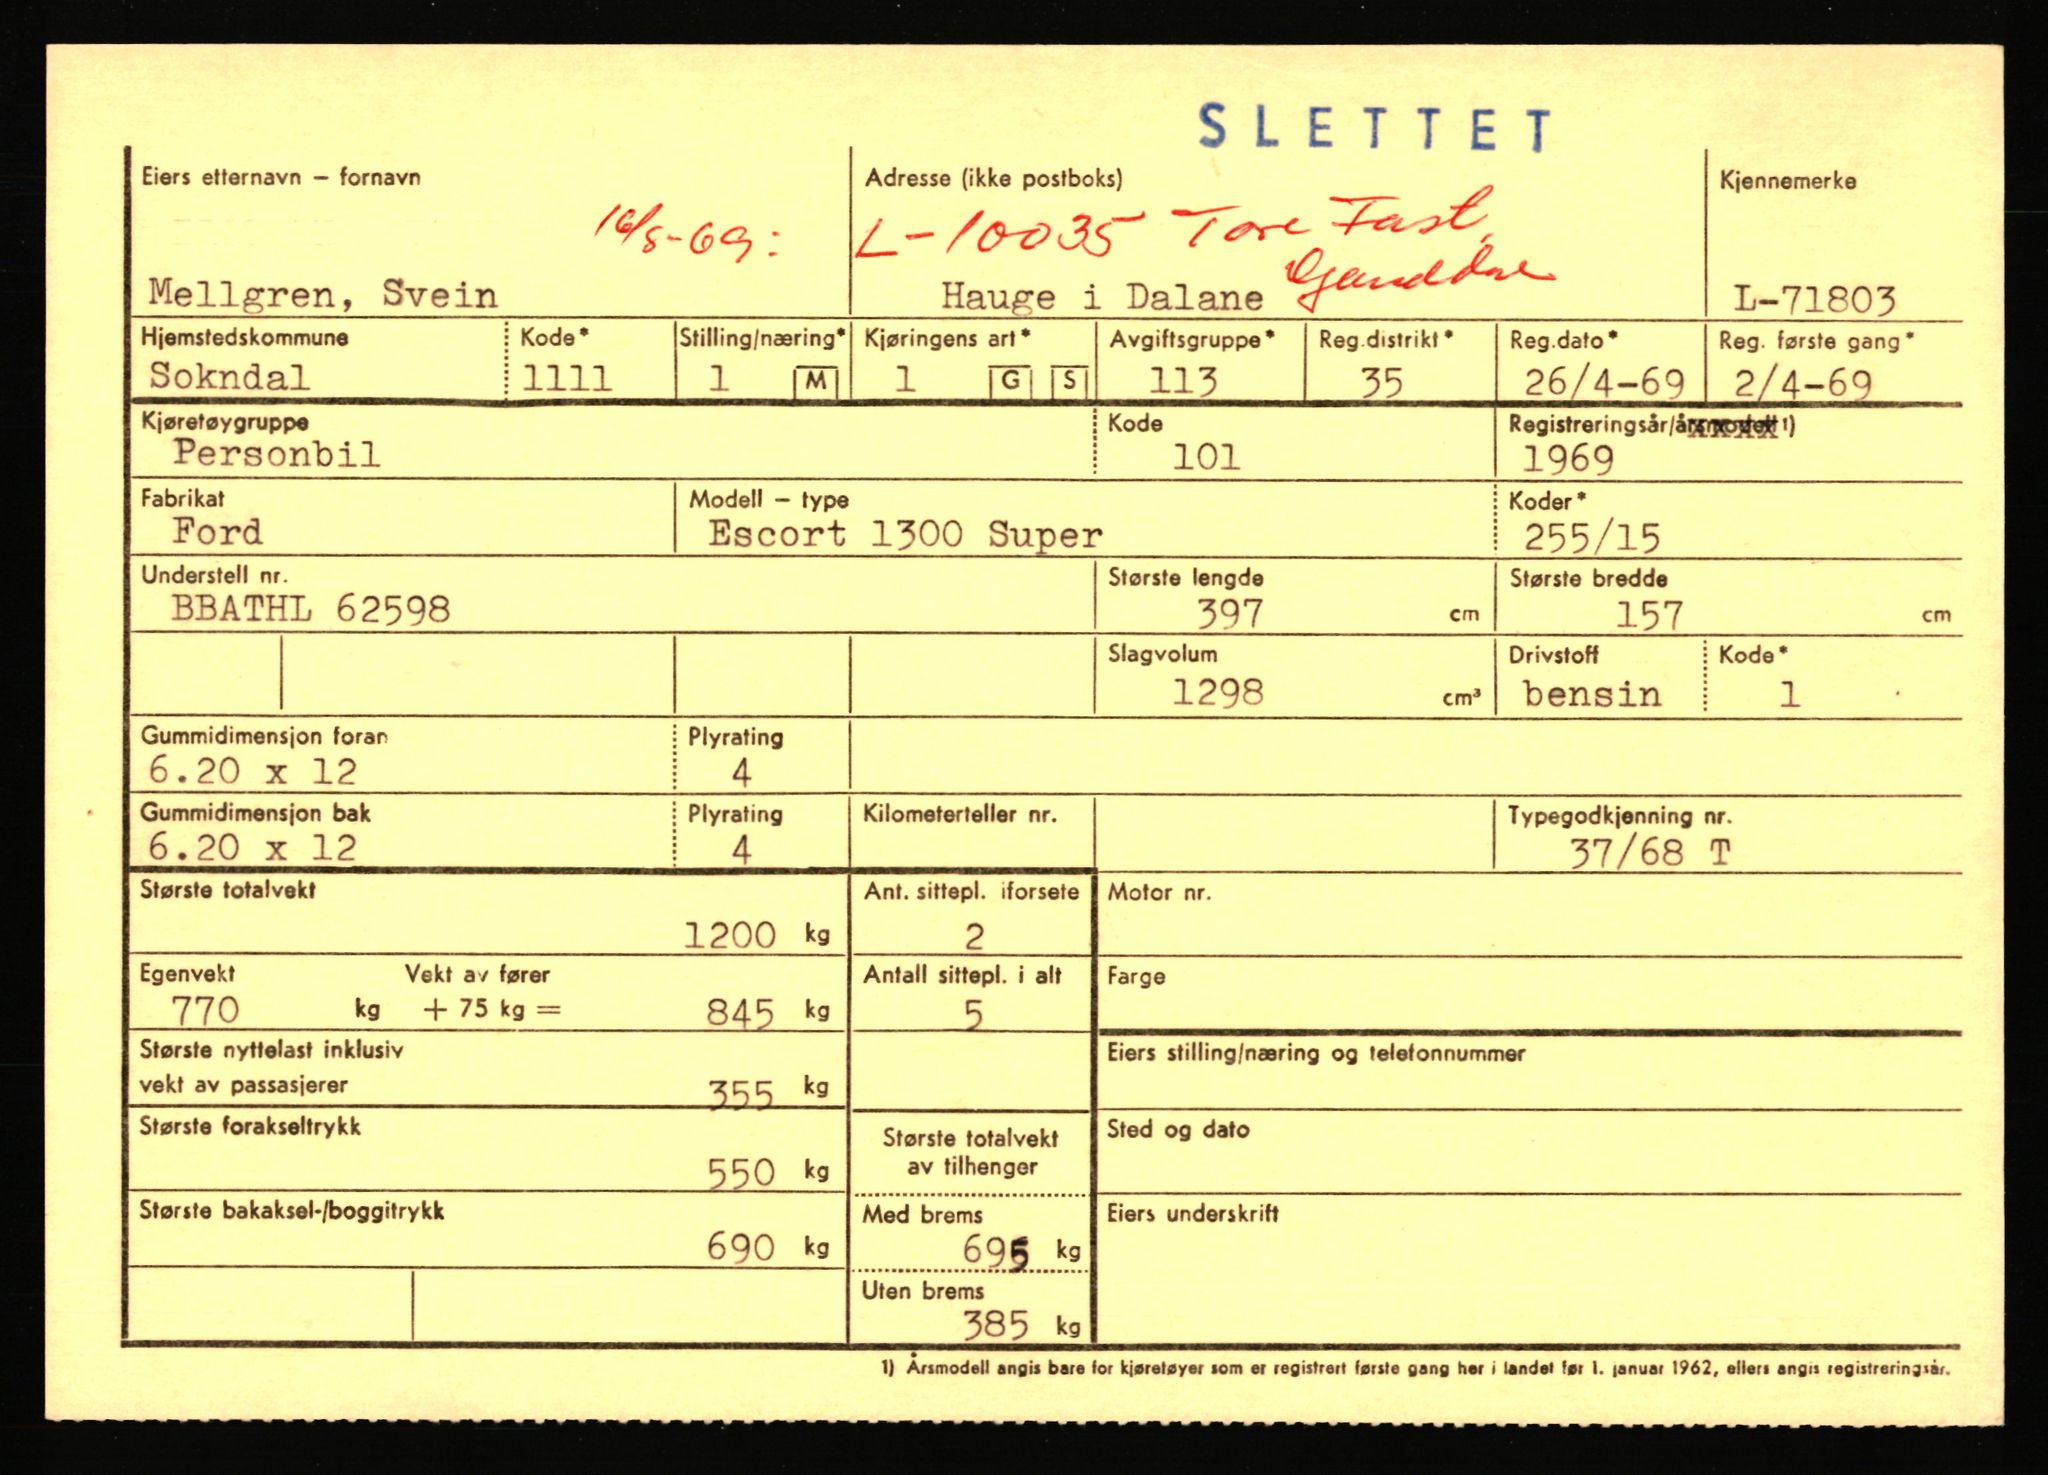 SLETTET
Eiers etternavn – fornavn Adresse (ikke postboks) Kjennemerke
16/8-69: L-10035 Tore Fast,
Mellgren, Svein Hauge i Dalane L-71803
Hjemstedskommune Kode* Stilling/næring* Kjøringens art* Avgiftsgruppe* Reg.distrikt* Reg.dato* Reg. første gang*
Sokndal 1111 1 M 1 G S 113 35 26/4-69 2/4-69
Kjøretøygruppe Kode Registreringsår/årsmodell 1)
Personbil 101 1969
Fabrikat Modell – type Koder*
Ford Escort 1300 Super 255/15
Understell nr. Største lengde Største bredde
BBATHL 62598 397 cm 157 cm
Slagvolum Drivstoff Kode*
1298 cm³ bensin 1
Gummidimensjon foran Plyrating
6.20 x 12 4
Gummidimensjon bak Plyrating Kilometerteller nr. Typegodkjenning nr.
6.20 x 12 4 37/68 T
Største totalvekt Ant. sittepl. iforsete Motor nr.
1200 kg 2
Egenvekt Vekt av fører Antall sittepl. i alt Farge
770 kg + 75 kg = 845 kg 5
Største nyttelast inklusiv Eiers stilling/næring og telefonnummer
vekt av passasjerer 355 kg
Største forakseltrykk Største totalvekt Sted og dato
av tilhenger
550 kg
Største bakaksel-/boggitrykk Med brems Eiers underskrift
690 kg 695 kg
Uten brems
385 kg
1) Årsmodell angis bare for kjøretøyer som er registrert første gang her i landet før 1. januar 1962, ellers angis registreringsår.